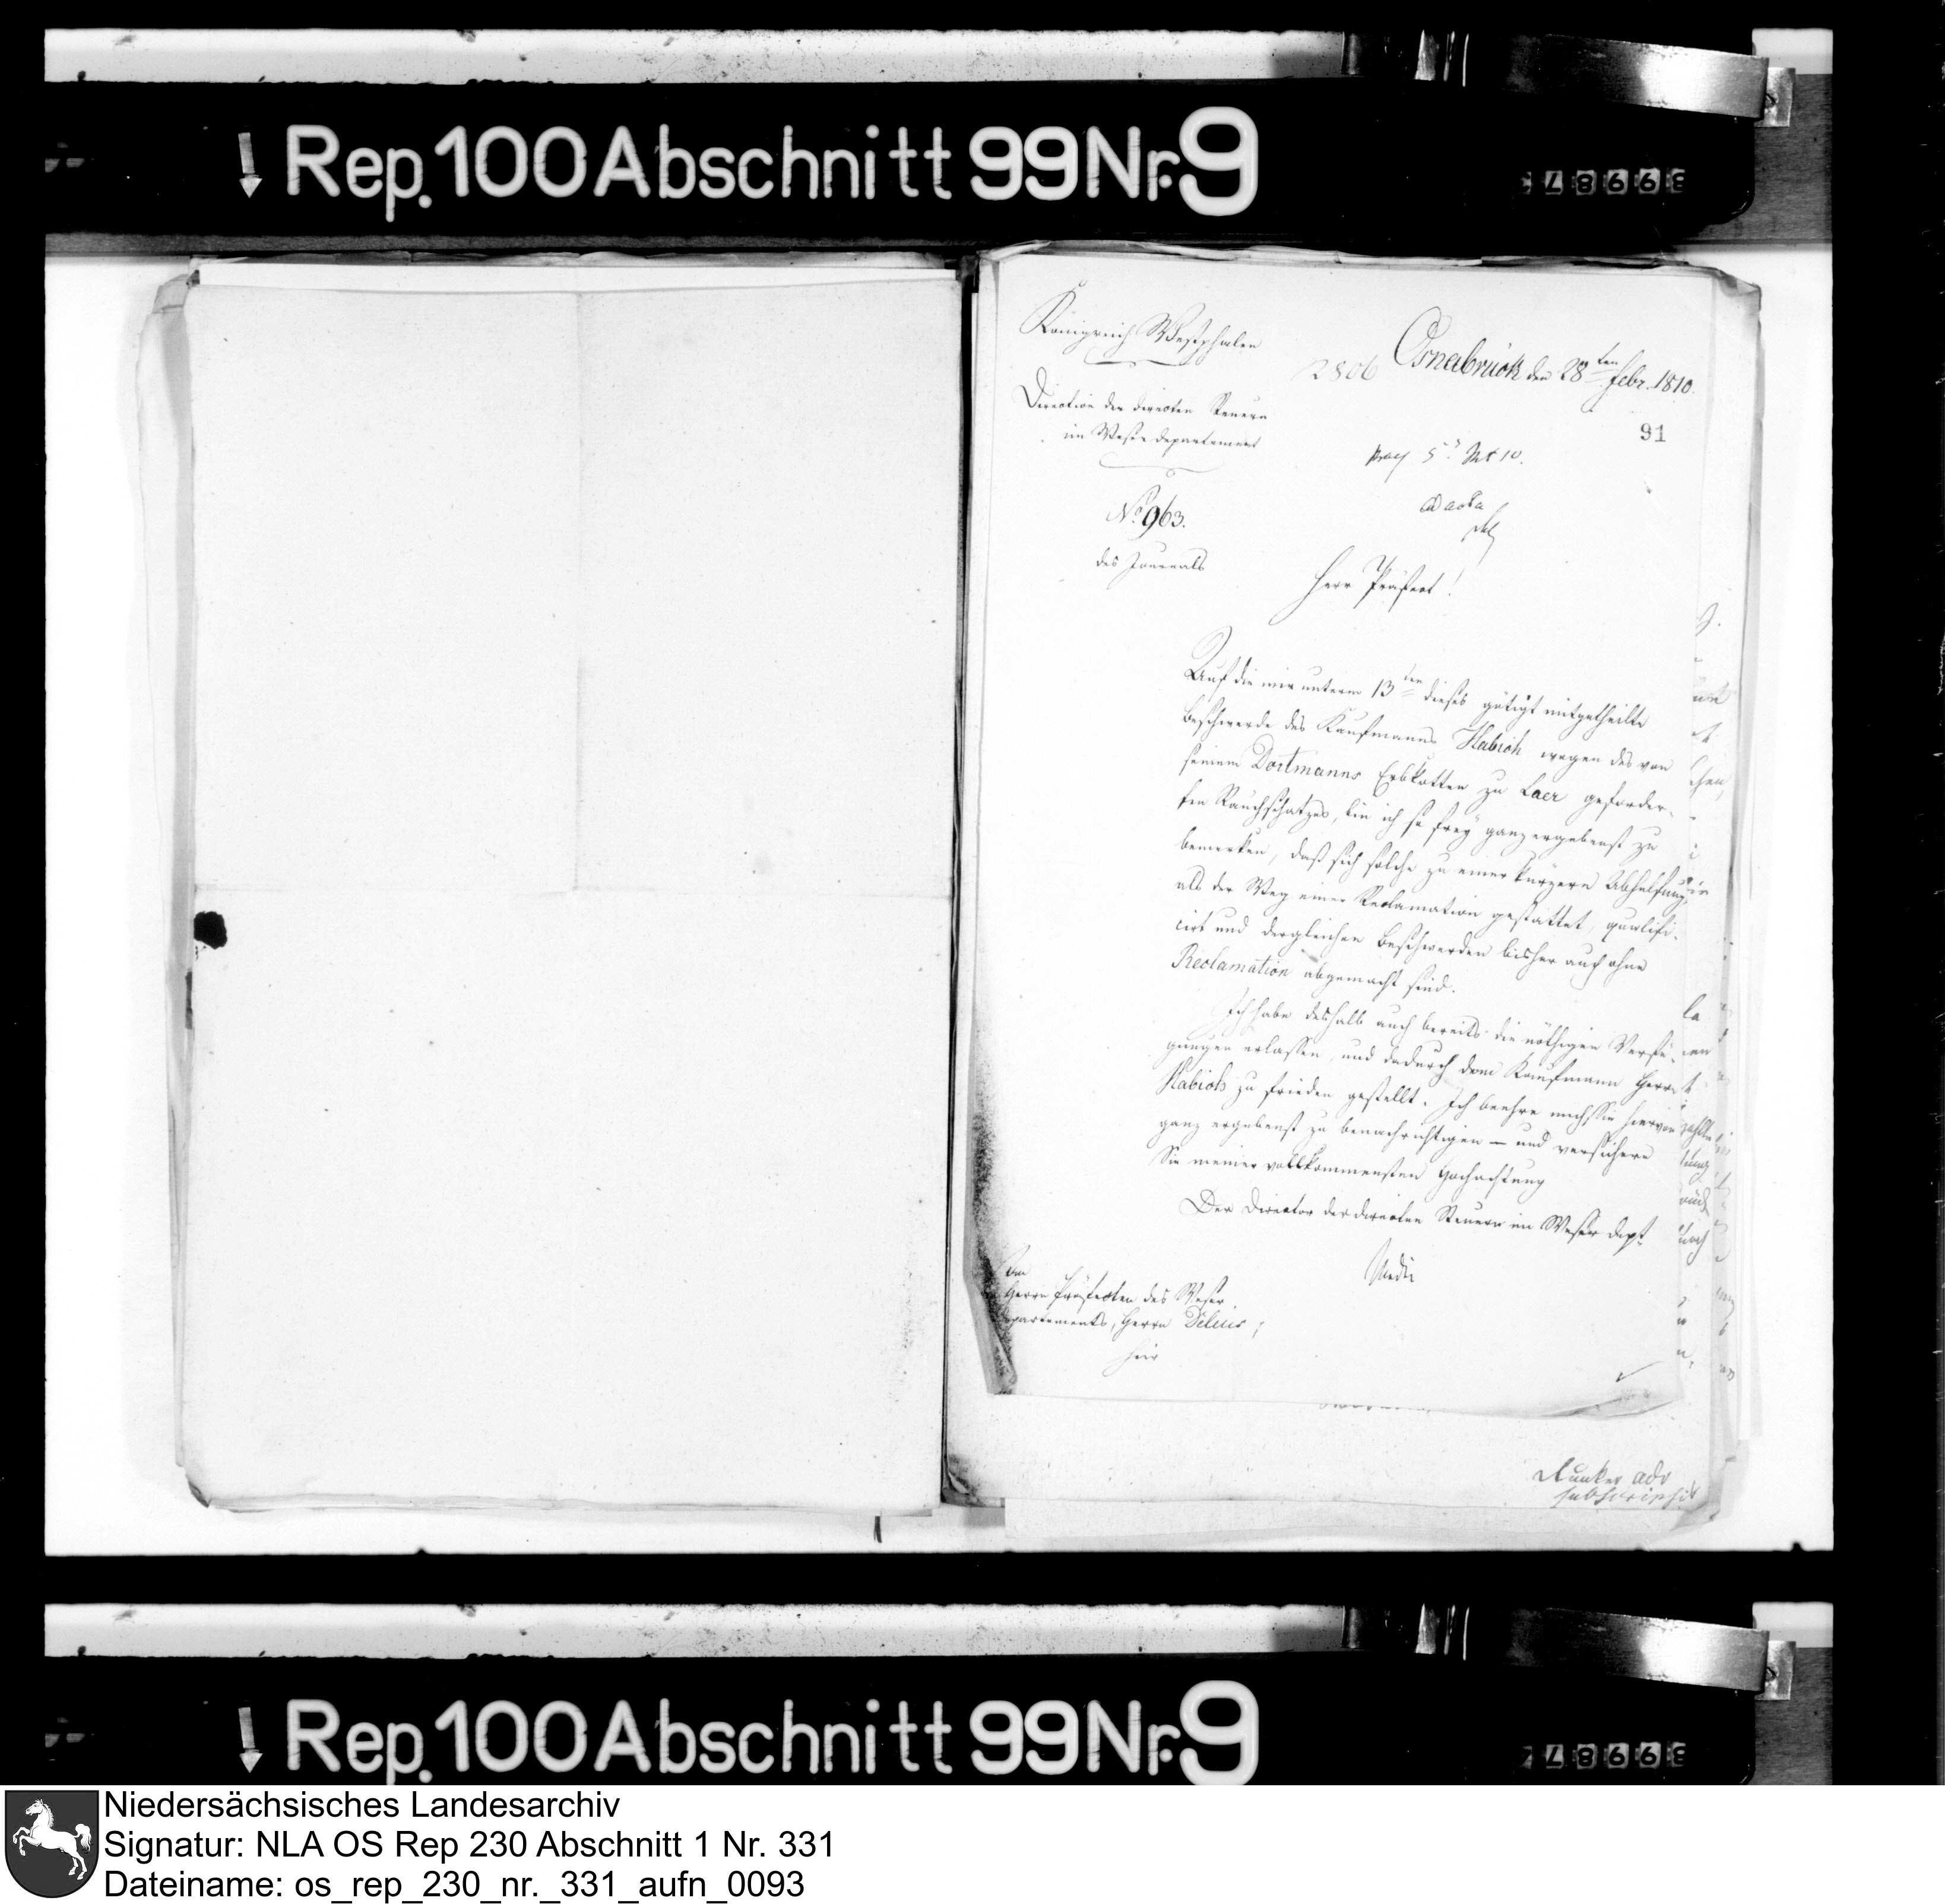 Rep. 100 Abschnitt 99 Nr. 9
Königreich Westphalen
2806 Osnabrück den 28ten Febr. 1810.
Direction der directen Steuern
im Weserdepartement
91
No 963.
ad acta
des Journals
Herr Präfect!
Auf die mir unterm 13ten dieses gütigst mitgetheilte
Beschwerde des Kaufmanns Habich wegen des von
seinem Dortmanns Erbkotten zu Laer geforder-
ten Rauchschatzes, bin ich so frey ganz ergebenst zu
bemerken, daß sich solche zu einer kürzern Abhelfung,
als der Weg einer Reclamation gestattet, qualifi-
cirt und dergleichen Beschwerden bisher auch ohne
Reclamation abgemacht sind.
Ich habe deshalb auch bereits die nöthigen Verfü-
gungen erlassen, und dadurch dem Kaufmann Herrn
Habich zu frieden gestellt. Ich beehre mich Sie hiervon
ganz ergebenst zu benachrichtigen — und versichere
Sie meiner vollkommensten Hochachtung
Der Director der directen Steuern im Weser Dept.
An
Herrn Präfecten des Weser
partements, Herrn Delius;
hier
Dunker adv
subscripsit
Rep. 100 Abschnitt 99 Nr. 9
Niedersächsisches Landesarchiv
Signatur: NLA OS Rep 230 Abschnitt 1 Nr. 331
Dateiname: os_rep_230_nr._331_aufn_0093